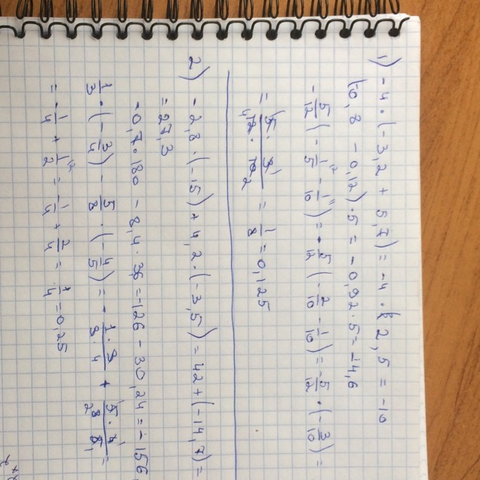 1) -4 · (-3,2 + 5,7) = -4 · 2,5 = -10
(0,8 - 0,12) · 5 = -0,92 · 5 = -4,6
-5/12 (-1/5 - 1/10) = -5/12 (-2/10 - 1/10) = -5/12 · (-3/10) =
= 5 · 3 / 12 · 10 = 1/8 = 0,125
2) -2,8 · (-15) + 4,2 · (-3,5) = 42 + (-14,7) =
= 27,3
-0,7 · 180 - 8,4 · 3,6 = -126 - 30,24 = -156,
1/3 · (-3/4) - 5/8 · (-4/5) = -1 · 3 / 3 · 4 + 5 · 4 / 8 · 5 =
= -1/4 + 1/2 = -1/4 + 2/4 = 1/4 = 0,25